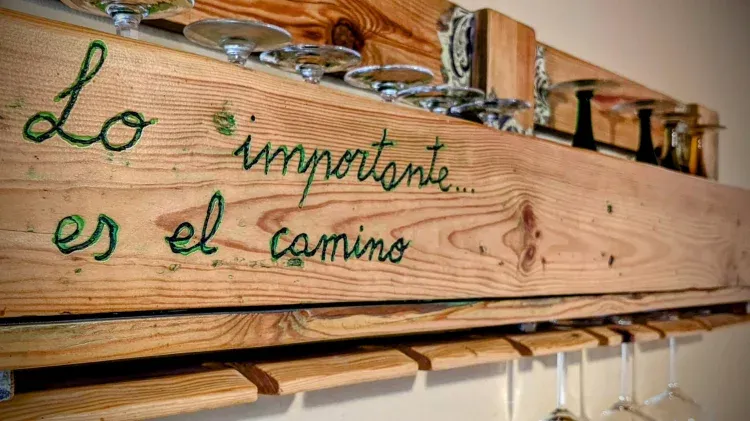 Lo importante...
es el camino